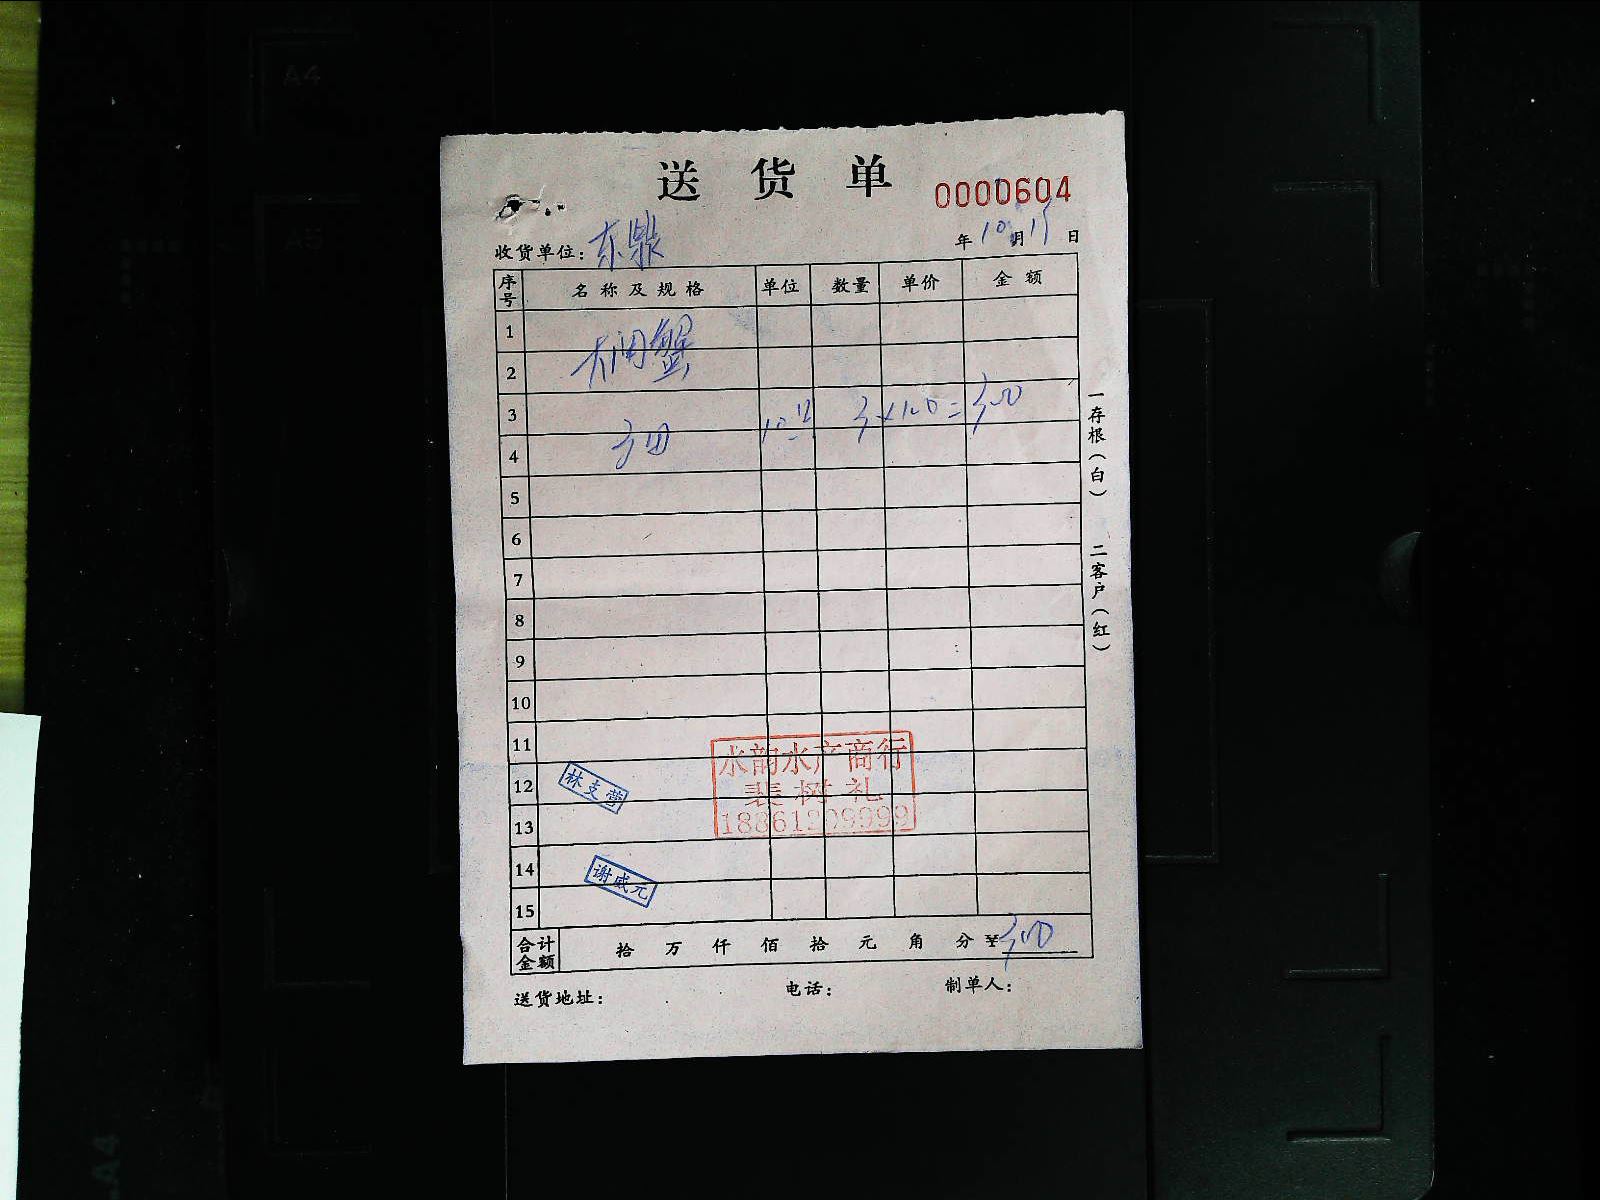 送 货 单
0000604
收货单位: 东鼎
年 10 月 15 日
序号 名称及规格 单位 数量 单价 金额
1
大闸蟹
2
3
3两 10只 3×100=300
4
5
6
7
8
9
10
11
12
13
14
15
水韵水产商行
裴树礼
18861209999
林支营
谢威元
合计金额 拾 万 仟 佰 拾 元 角 分 ¥300
送货地址: 电话: 制单人:
一存根(白) 二客户(红)
A4
A5
A4